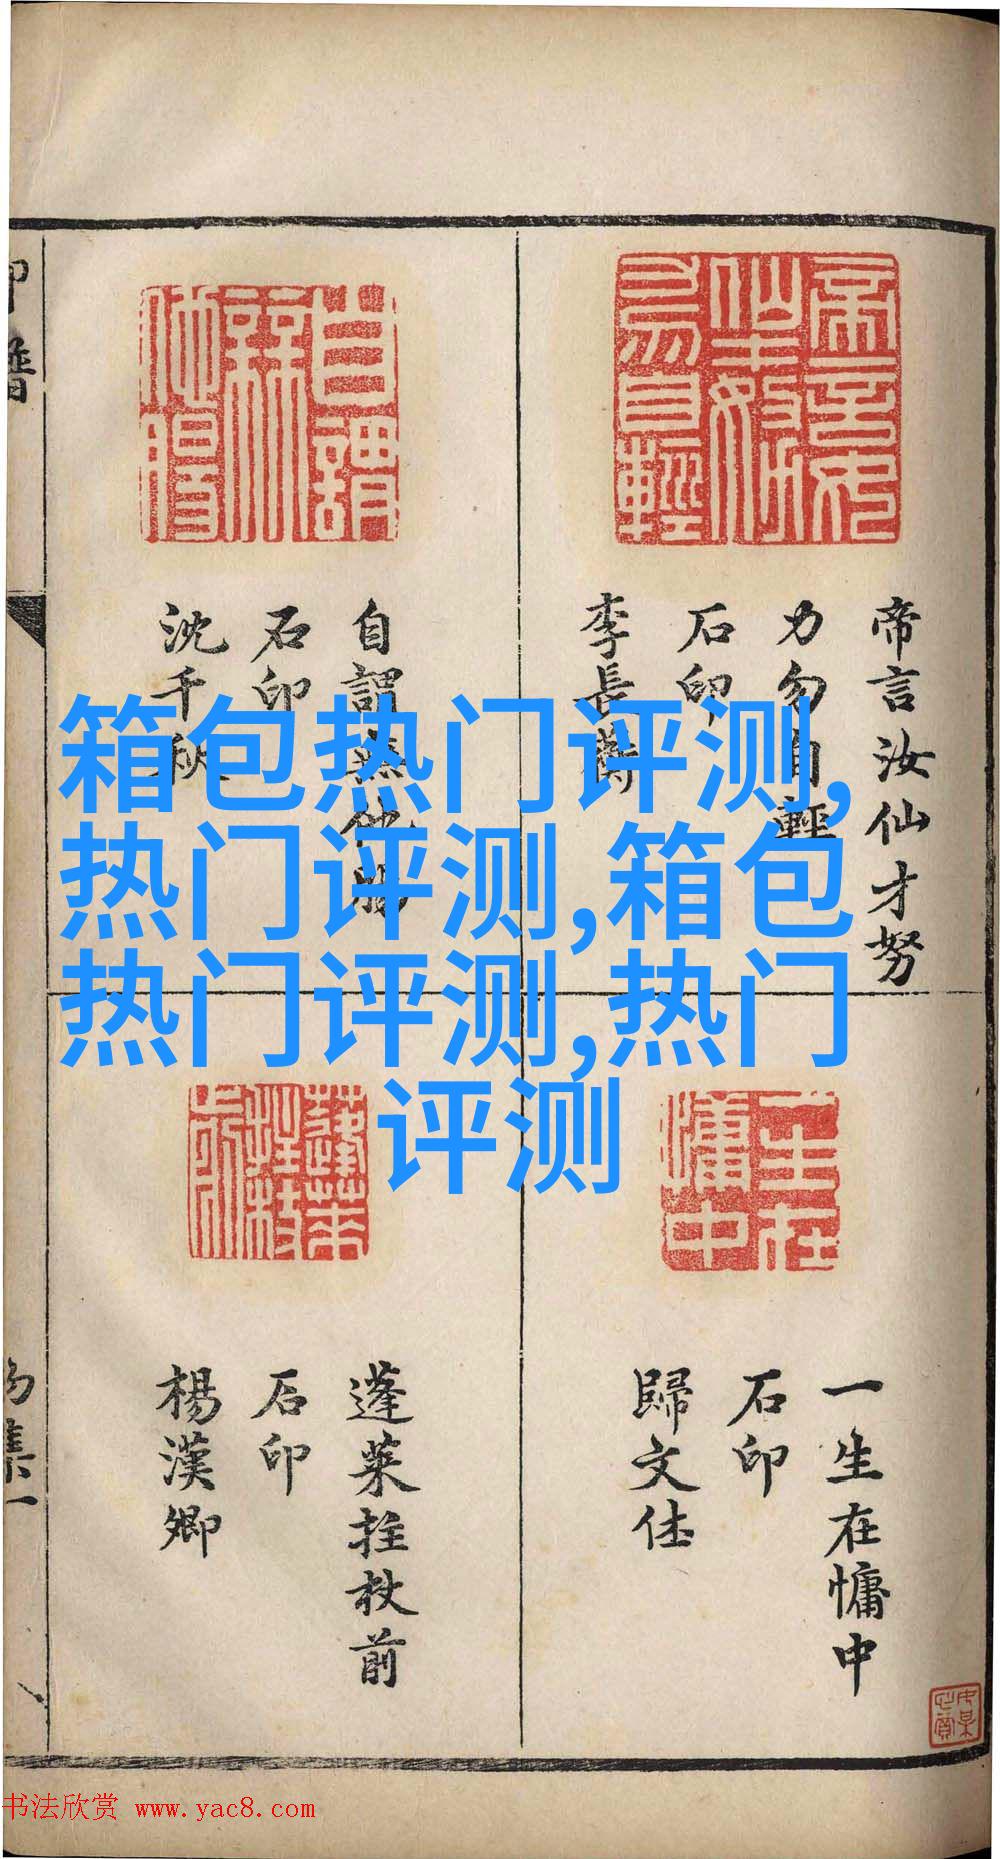 帝言汝仙才努
力勿自輕
石印
李長蘅
自謂無他腸
石印
沈千秋
一生在慵中
石印
歸文休
蓬萊拄杖前
石印
楊漢卿
箱包热门评测,
热门评测,箱包
热门评测,热门
评测
书法欣赏 www.yac8.com